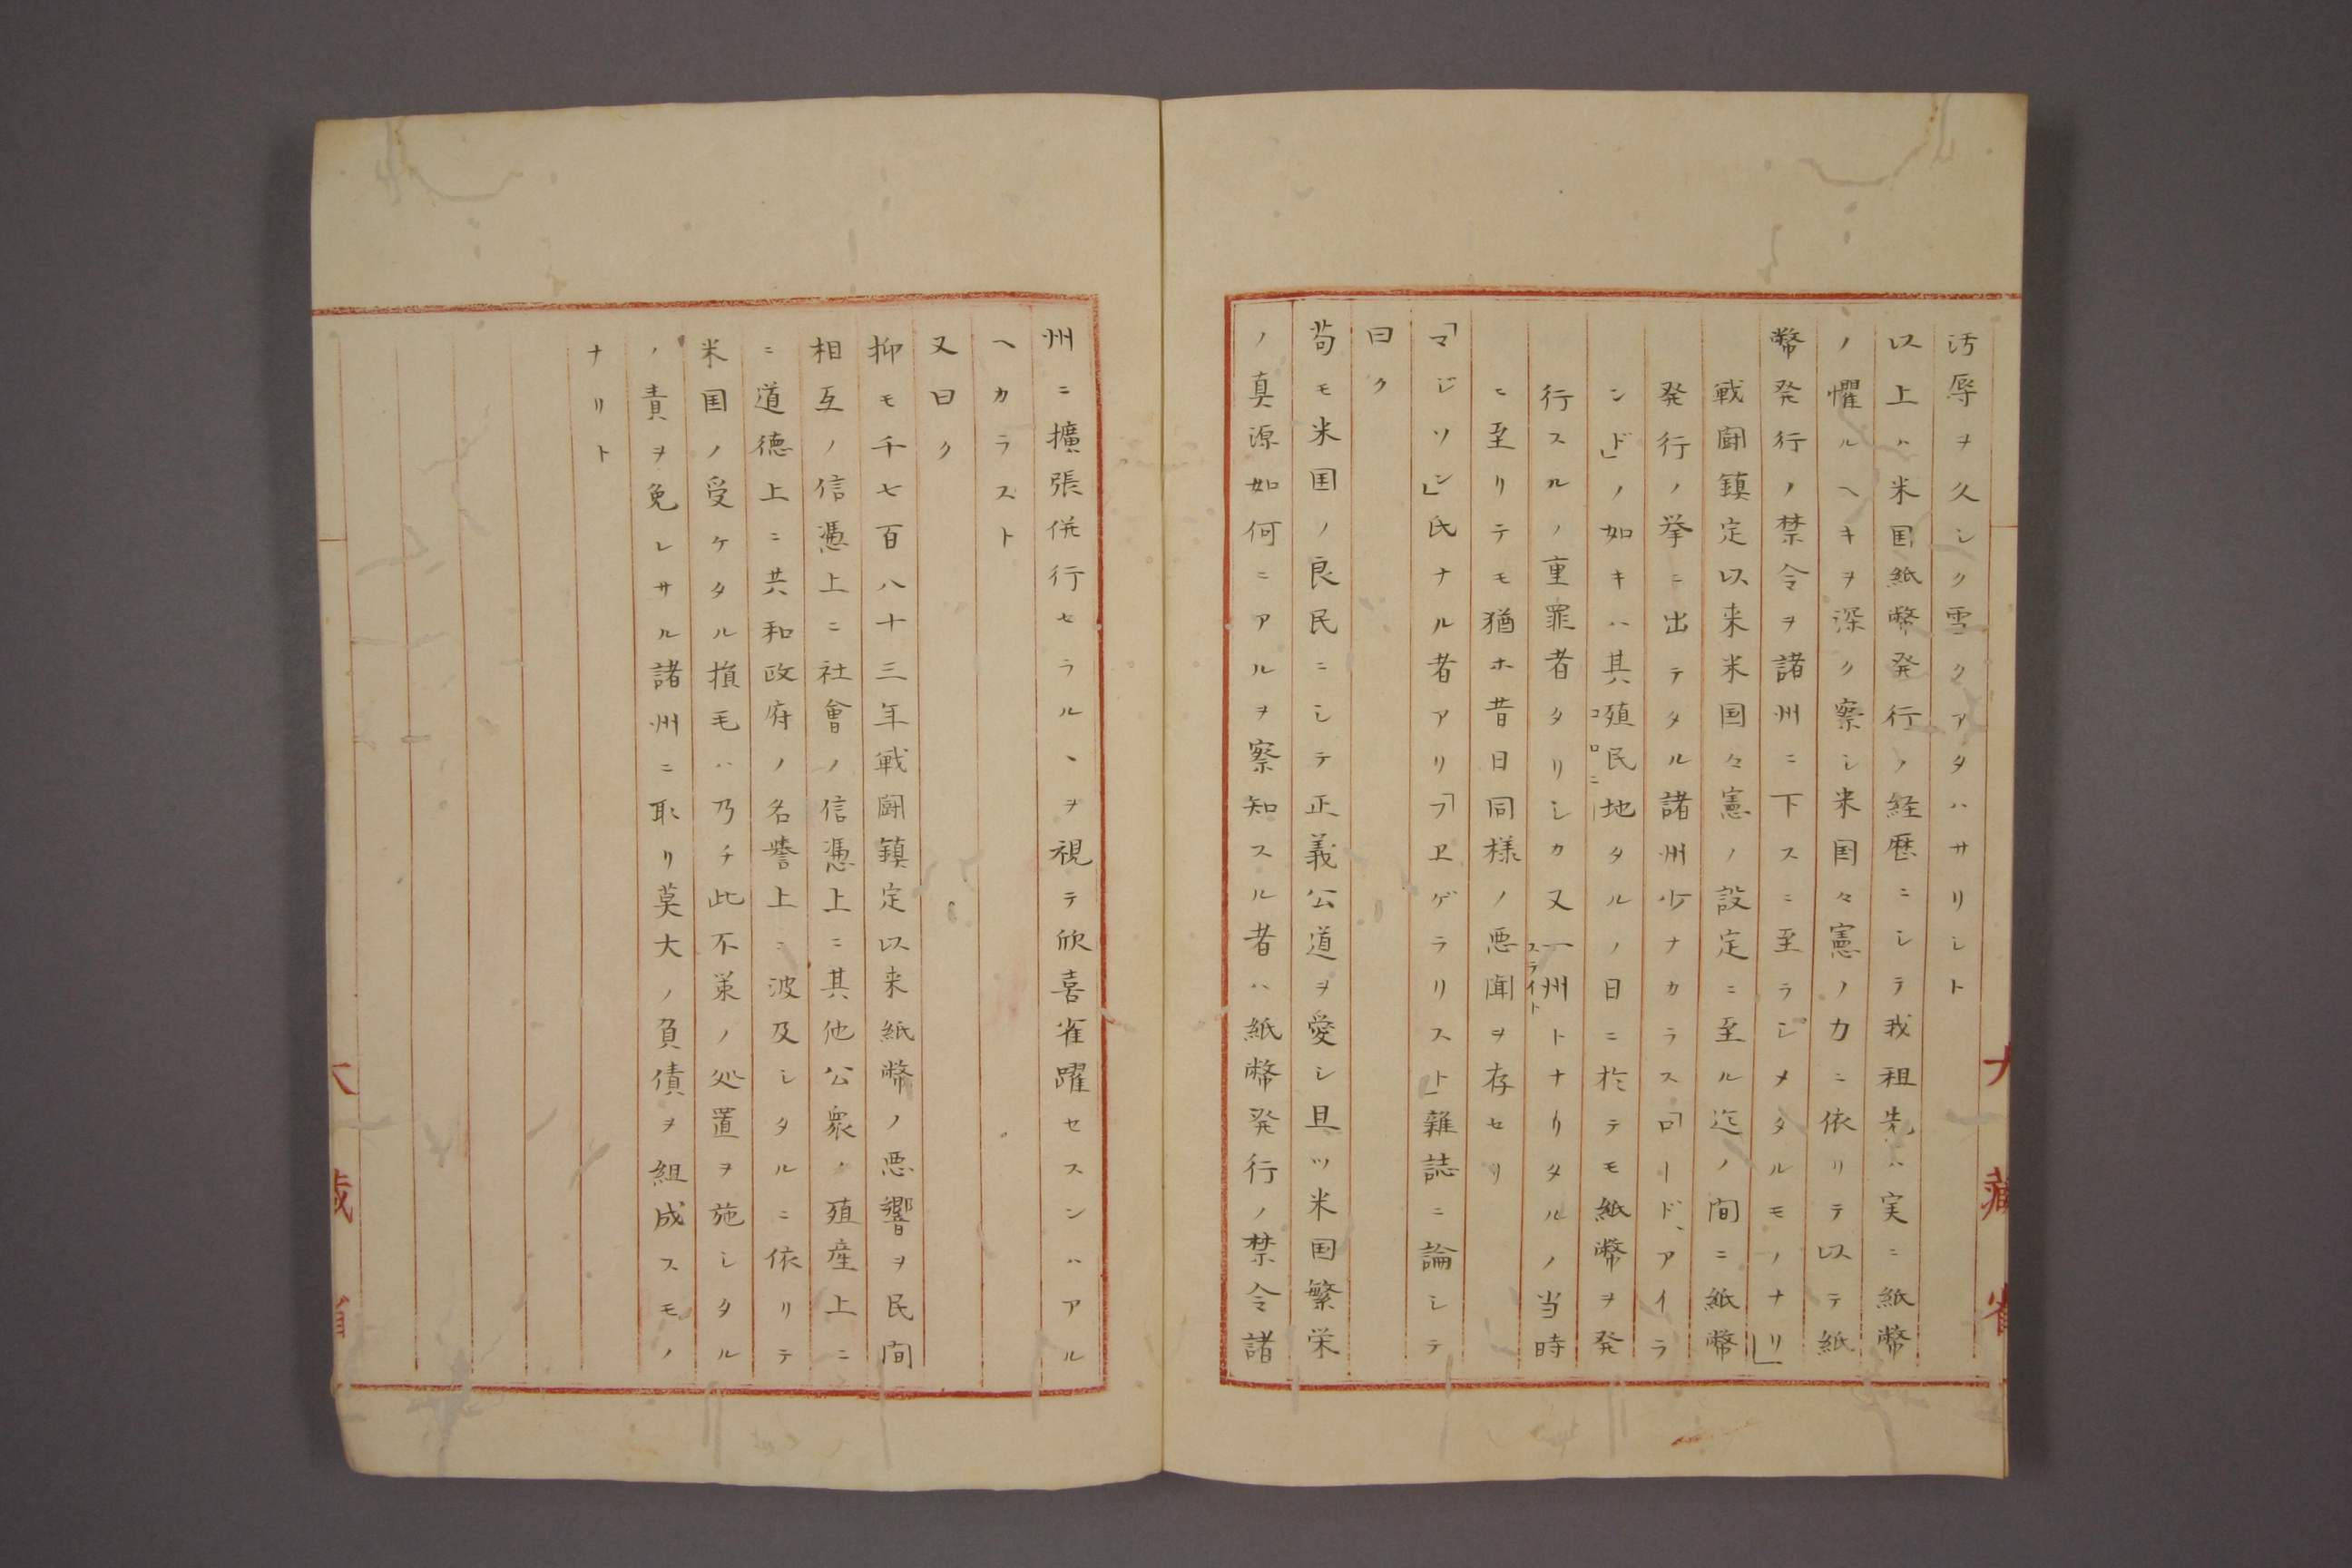 汚辱ヲ久シク雪クアタハサリシト
以上ハ米国紙幣発行ノ経歴ニシテ我祖先ハ実ニ紙幣
ノ懼ルヘキヲ深ク察シ米国々憲ノ力ニ依リテ以テ紙
幣発行ノ禁令ヲ諸州ニ下スニ至ラシメタルモノナリ」
戦闘鎮定以来米国々憲ノ設定ニ至ル迄ノ間ニ紙幣
発行ノ挙ニ出テタル諸州少ナカラス「ロードアイラ
ンド」ノ如キハ其殖民地タルノ日ニ於テモ紙幣ヲ発
コロニー
行スルノ重罪者タリシカ又一州トナリタルノ当時
ステイト
ニ至リテモ猶ホ昔日同様ノ悪聞ヲ存セリ
「マジソン」氏ナル者アリ「フヱゲラリスト」雑誌ニ論シテ
曰ク
苟モ米国ノ良民ニシテ正義公道ヲ愛シ且ツ米国繁栄
ノ真源如何ニアルヲ察知スル者ハ紙幣発行ノ禁令諸
州ニ擴張併行セラルヽヲ視テ欣喜雀躍セスンハアル
ヘカラスト
又曰ク
抑モ千七百八十三年戦闘鎮定以来紙幣ノ悪響ヲ民間
相互ノ信憑上ニ社會ノ信憑上ニ其他公衆ノ殖産上ニ
ニ道徳上ニ共和政府ノ名誉上ニ波及シタルニ依リテ
米国ノ受ケタル損毛ハ乃チ此不策ノ処置ヲ施シタル
ノ責ヲ免レサル諸州ニ取リ莫大ノ負債ヲ組成スモノ
ナリト
大藏省
大藏省